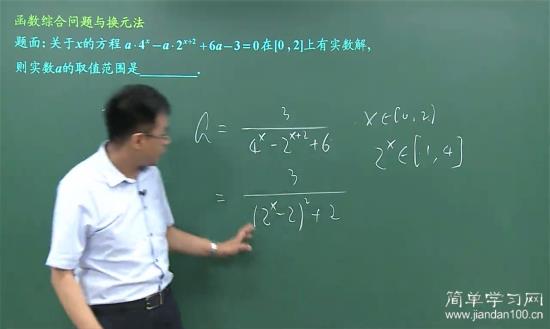 函数综合问题与换元法
题面：关于x的方程 a·4^x－a·2^{x+2}+6a－3=0在[0，2]上有实数解，
则实数a的取值范围是________．
a = 3 / (4^x - 2^{x+2} + 6)  x∈[0,2]
2^x∈[1,4]
= 3 / ((2^x - 2)^2 + 2)
简单学习网
www.jiandan100.cn